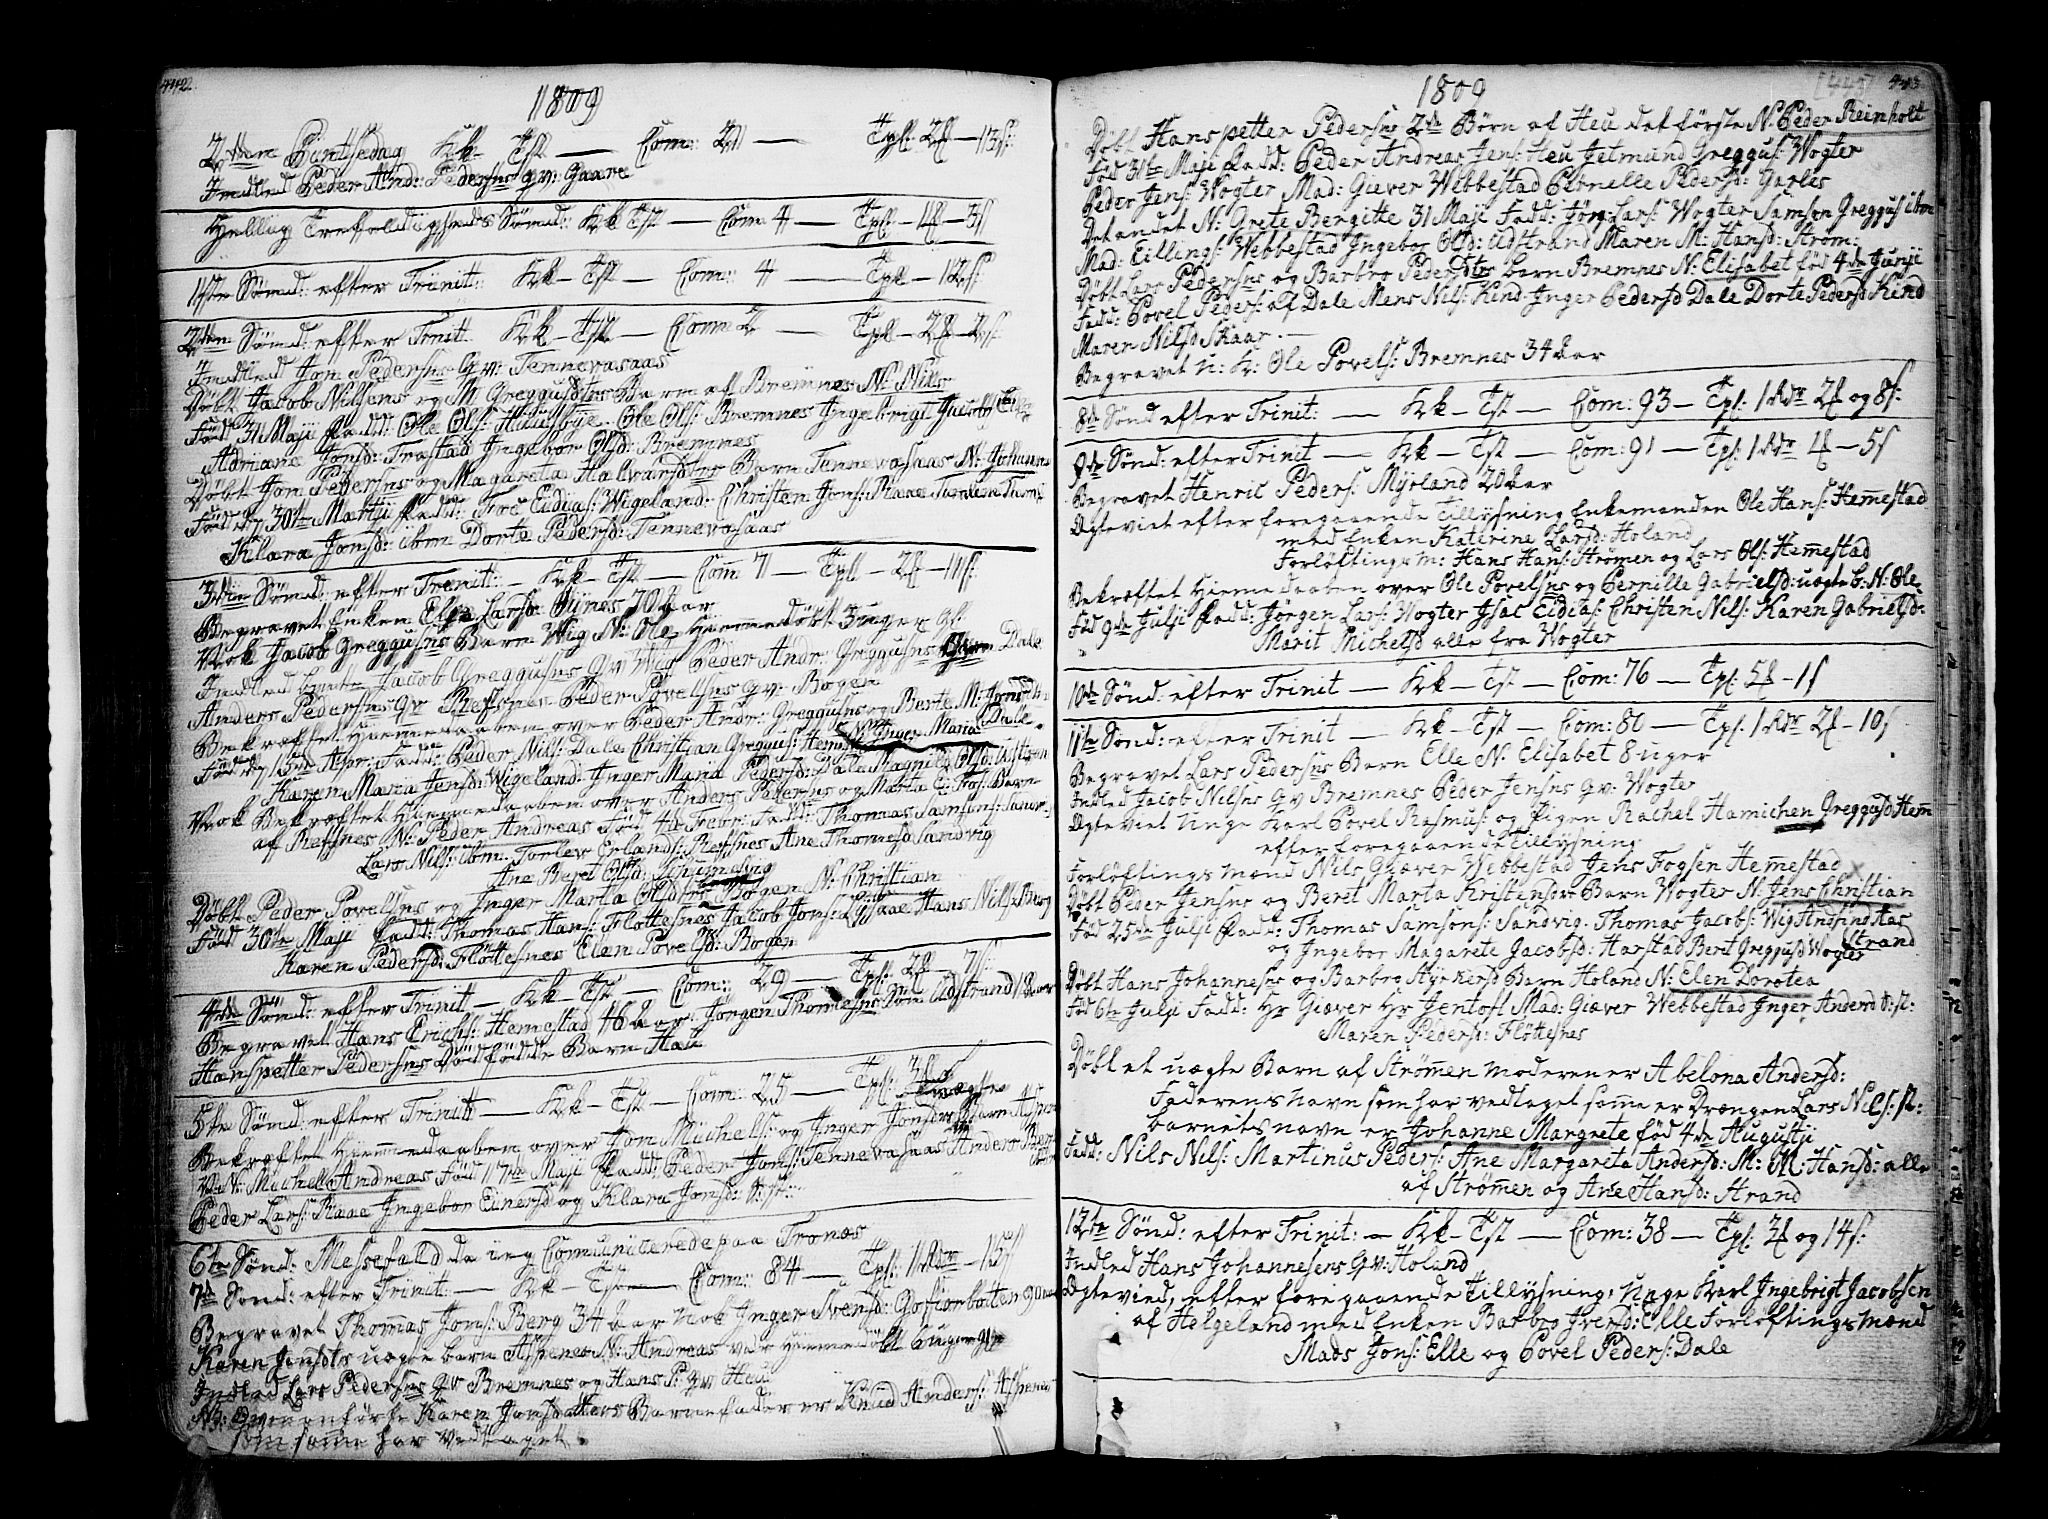 442
1809
2den Pintsedag Kk- Tst — Com: 211 — Tpl: 2£ — 13s:
Indled Peder And: Pedersns qv: Gaare
Hellig Trefoldigheds Sønd: Kk Tst — Com 4 — Tpl — 1£ — 3s
1ste Sønd: efter Trinit: Kk- Tst — Com: 4 — Tpl — 12s:
2den Sønd: efter Trnit. Kk- Tst — Com 2 — Tpl — 2£ — 2s.
Indled Jon Pedersns qv: Tennevasaas
Døbt Jacob Nilsens og M Greggusdtrs Barn af Bremnes N: Nils
Fød 31 Maji Fadd: Ole Ols: Ole Ols: Bremnes Ingebrigt Jacobs:
Adriana Jonsd: Trastad Ingebor Olsd: Bremnes
Døbt Jon Pedersns og Magareta Halvarsdtr Barn Tennevasaas N: Johannes
Fød 30te Martii Fadd: Eidias: Wigeland: Christen Jons: Raae
Klara Jonsd: ibm Dorte Pedersd: Tennevasaas
3die Sønd: efter Trinit: — Kk- Tst — Com 71 — Tpl — 2£ — 11s:
Begravet Enken Else Larsd: 70 Aar
Nok Jacob Greggusns Barn Wig N: Ole Hiemedøbt 3 uger gl:
Indled Jacob Greggusns qv Wig Peder Andr: Greggusns Dale
Anders Pedersns qv Refsnes Peder Povelsns qv: Bogen
Bekræftet Hiemedaaben over Peder Andr: Greggusns og Berte M: Dale
N: Inger Maria
Fød 15de Apr: Fadd: Peder Nils: Dale Christian Greggus: Hemestad
Karen Maria Jensd: Wigeland: Inger Maria Pedersd: Dale Magnild Olsd:
Nok Bekræftet Hiemedaaben over Anders Pedersns og Marta E: Barn
af Refsnes N: Peder Andreas Fød 4de Febr: Fadd: Thomas Samsons: Sandvig
Lars Nils: ibm. Torlev Erlands: Refsnes Ane Thomesd Sandvig
Ane Beret Olsd:
Døbt Peder Povelsns og Inger Marta Olsdtrs Bogen N: Christian
Fød 30te Maji Fadd: Thomas Hans: Fløttesnes Jacob Jonsen Hans Nils: Berg
Karen Pedersd: Fløttesnes Elen Povelsd: Bogen
4de Sønd: efter Trinit — Kk- Tst — Com: 29 — Tpl: 2£ — 7s:
Begravet Hans Erichs: Hemestad 46 Aar. Jørgen Thomesns Søn Udstrand 18 Aar
Hanspetter Pedersns Dødfødde Barn Heu
5te Sønd: efter Trinit: — Kk- Tst — Com: 25 — Tpl: 3£
Bekræftet Hiemedaaben over Jon Michels: og Inger Jonsdtrs uægte Barn Aspenes
N: Michel Andreas Fød 17de Maji Fadd: Peder Jons: Tennevasaas Anders Berg
Peder Lars: Raae Ingebor Einersd og Klara Jonsd: st:
6te Sønd: Messefald da ieg Comunicerede paa Tronæs
7de Sønd: efter Trinit: — Kk- Tst — Com: 84 — Tpl: 1 Rdr — 15s
Begravet Thomas Jons: Berg 34 Aar nok Inger Svensd: Gofsionbotten 90 Aar
Karen Jensdtrs uægte barn Aspenes N: Andreas var Hiemedøbt 6 uger gl:
Indled Lars Pedersns qv Bremnes og Hans P: qv Heu
NB: Ovenanførte Karen Jonsdatters Barnefader er Knud Anders: Aspenes
som samme har vedtaget.
443
1809
[443]
Døbt Hanspetter Pedersns 2de Børn af Heu det første N: Peder Reinholt
Fød 31te Maji Fadd: Peder Andreas Jens: Heu Jetmund Greggus: Wogter
Peder Jens: Wogter Mad: Giæver Webbestad Pernelle Pedersd: Garles
Det andet N: Grete Bergitte 31 Maji Fadd: Jørg: Lars: Wogter Samson Greggus ibm
Mad: Eillings: Webbestad Ingebor Olsd: Udstrand Maren M: Hansd: Strøm:
Døbt Lars Pedersns og Barbro Pedersdtrs barn Bremnes N: Elisabet fød 4de Junii
Fadd: Povel Peders: af Dale Mens Nils: Kind. Inger Pedersd Dale Dorte Pedersd Kind
Maren Nilsd Skaar —
Begravet u: k: Ole Povels: Bremnes 34 Aar
8de Sønd efter Trinit: — Kk- Tst — Com: 93 — Tpl: 1 Rdr 2£ og 8s:
9de Sønd: efter Trinit — Kk- Tst — Com: 91 — Tpl: 1 Rdr 1£ — 5s
Begravet Henric Peders: Myrland 20 Aar
Egteviet efter foregaaende Tillysning Enkemanden Ole Hans: Hemestad
med Enken Katerine Larsd: Holand
Forløftings m: Hans Hans: Strømen og Lars Ols: Hemestad
Bekræftet Hiemedaaben over Ole Povelsns og Pernille Gabrielsd: uægte b: N: Ole
Fød 9de Julji Fadd: Jørgen Lars: Wogter Isac Eidias: Christen Nils: Karen Gabrielsd:
Marit Michelsd alle fra Wogter
10de Sønd: efter Trinit — Kk- Tst — Com: 76 — Tpl: 5£ — 1s
11te Sønd: efter Trinit — Kk- Tst — Com: 80 — Tpl: 1 Rdr 2£ — 10s
Begravet Lars Pedersns Barn Elle N: Elisabet 8 uger
Indled Jacob Nilsns qv Bremnes Peder Jensns qv: Wogter
Egteviet Unge Karl Povel Rasmus: og Pigen Rachel Hamichen Greggusd Hem
efter foregaaende Tillysning
Forløftings mænd Nils Giæver Webbestad Jens Fogsen Hemestad
Døbt Peder Jensns og Beret Marta Kristensdr Barn Wogter N: Jens Christian
Fød 25de Julji Fadd: Thomas Samsons: Sandvig. Thomas Jacobs: Wig Aas
og Ingebor Magarete Jacobsd: Harstad Beret Greggusd Wogter Strand
Døbt Hans Johannesns og Barbro Styrkersd Barn Holand N: Elen Dorotea
Fød 6te Julji Fadd: Hr Giæver Hr Jentoft Mad: Giæver Webbestad Inger Andersd t: st:
Maren Pedersd: Fløttesnes
Døbt et uægte Barn af Strømen moderen er Abelona Andersd:
Faderens navn som har vedtaget same er Drængen Lars Nils: st:
barnets navn er Johanne Margrete fød 4de Augustji
Fadd: Nils Nils: Martinus Peders: Ane Margareta Andersd: M: M: Hansd: alle
af Strømen og Ane Hansd: Strand
12te Sønd: efter Trinit: — Kk- Tst — Com: 38 — Tpl: 3£ og 14s:
Indled Hans Johannesens qv: Holand
Egtevied, efter foregaaende Tillysning, Unge Karl Ingebrigt Jacobsen
af Helgeland med Enken Barbro Iversd: Elle Forløftings mænd
Mads Jons: Elle og Povel Peders: Dale